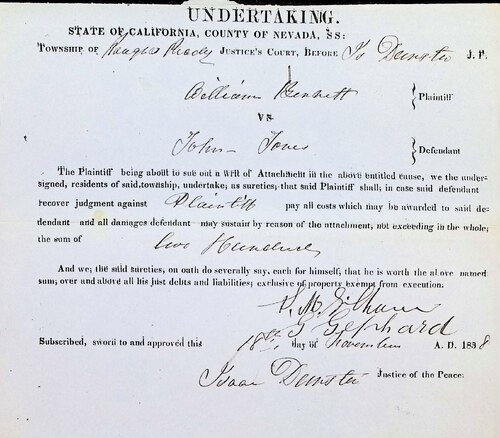 UNDERTAKING.
STATE OF CALIFORNIA, COUNTY OF NEVADA, SS:
TOWNSHIP OF Rough & Ready JUSTICE'S COURT, BEFORE Is Dunster J. P.
William Bennett } Plaintiff
VS
John Jones } Defendant
The Plaintiff being about to sue out a Writ of Attachment in the above entitled cause, we the under-
signed, residents of said township, undertake, as sureties; that said Plaintiff shall; in case said defendant
recover judgment against Plaintiff pay all costs which may be awarded to said de-
fendant and all damages defendant may sustain by reason of the attachment, not exceeding in the whole;
the sum of two Hundred
And we, the said sureties, on oath do severally say, each for himself; that he is worth the above named
sum; over and above all his just debts and liabilities; exclusive of property exempt from execution.
G Gephard
Subscribed, sword to and approved this 18th day of November A. D. 1858
Isaac Dunster Justice of the Peace.